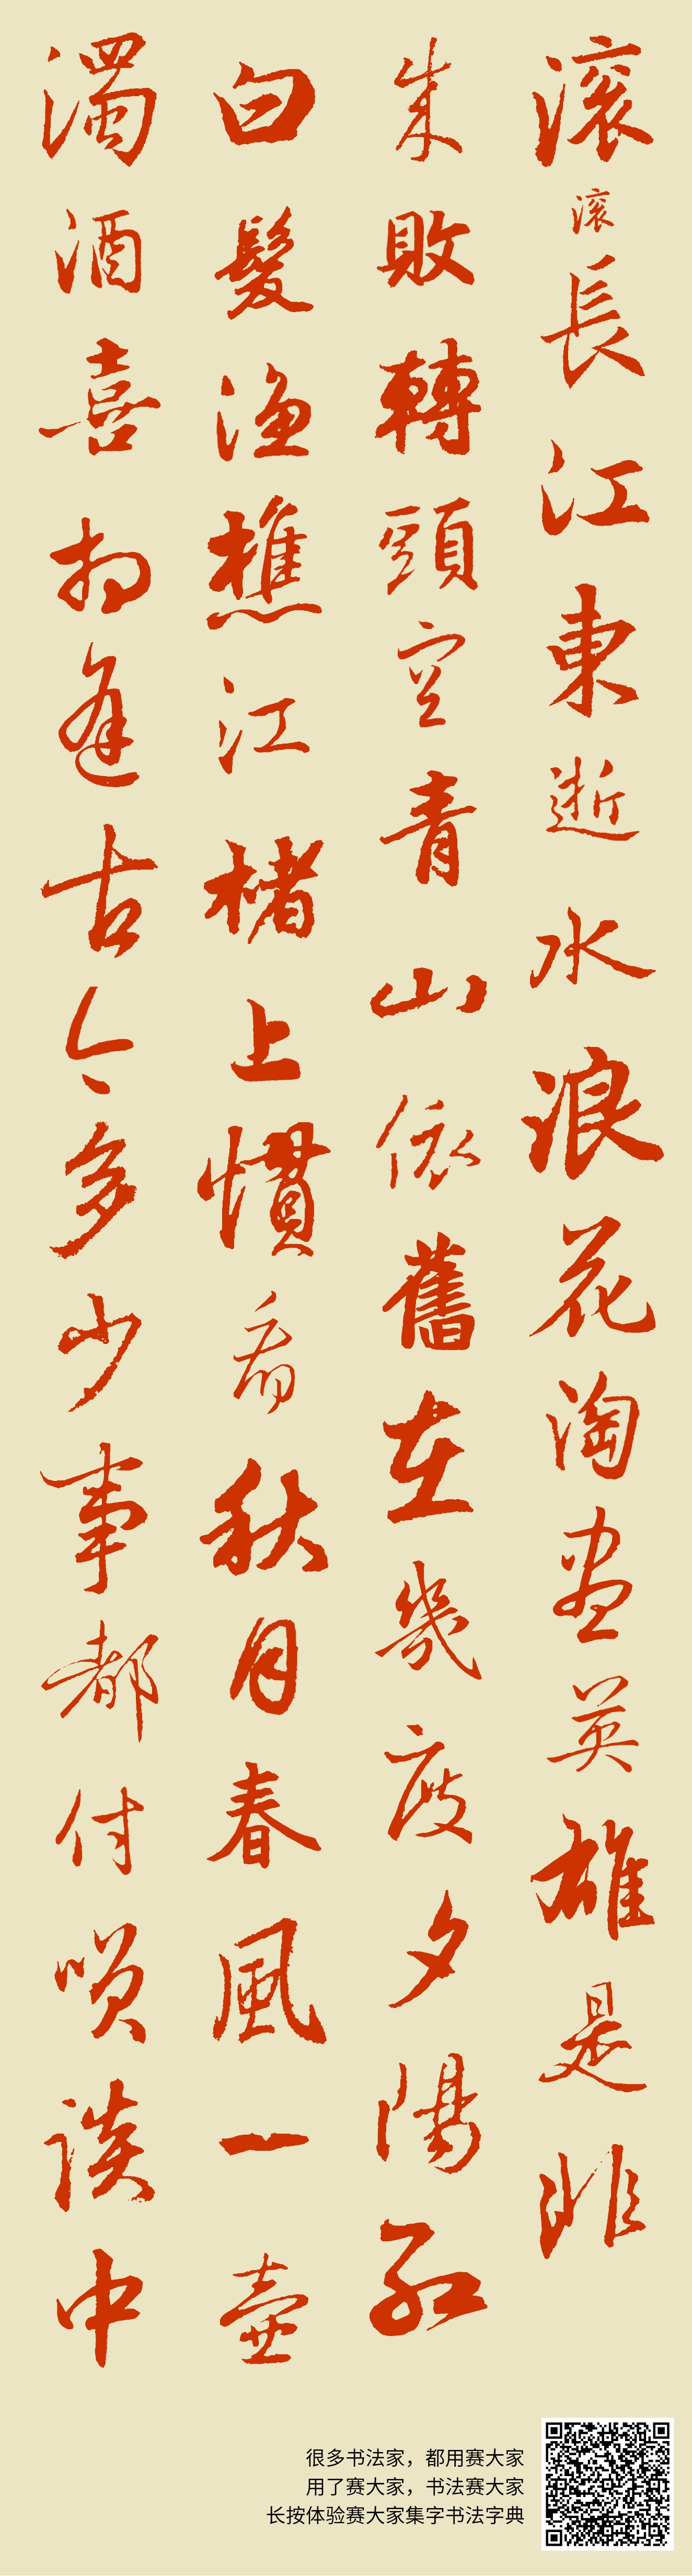 滚滚長江東逝水浪花淘盡英雄是非
朱敗轉頭空青山依舊在幾度夕陽紅
白髮渔樵江楮上慣看秋月春風一壺
濁酒喜相逢古今多少事都付咲談中
很多书法家，都用赛大家
用了赛大家，书法赛大家
长按体验赛大家集字书法字典